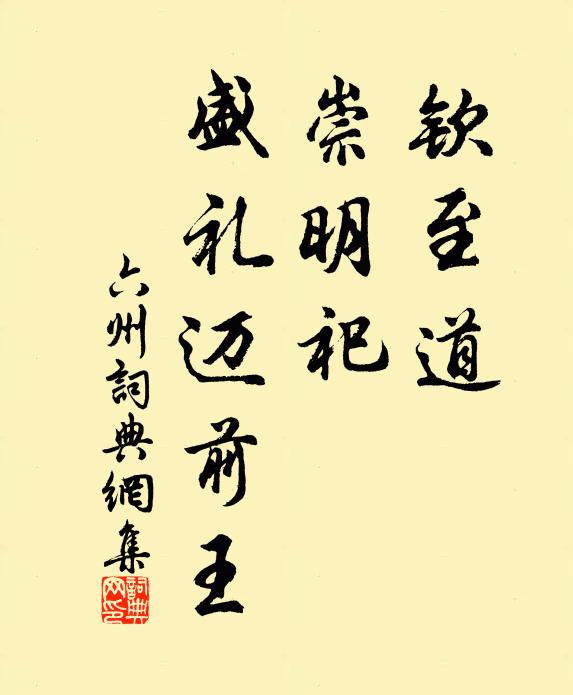 钦至道
崇明祀
盛礼迈前王
六州詞典網集
詞典
网印